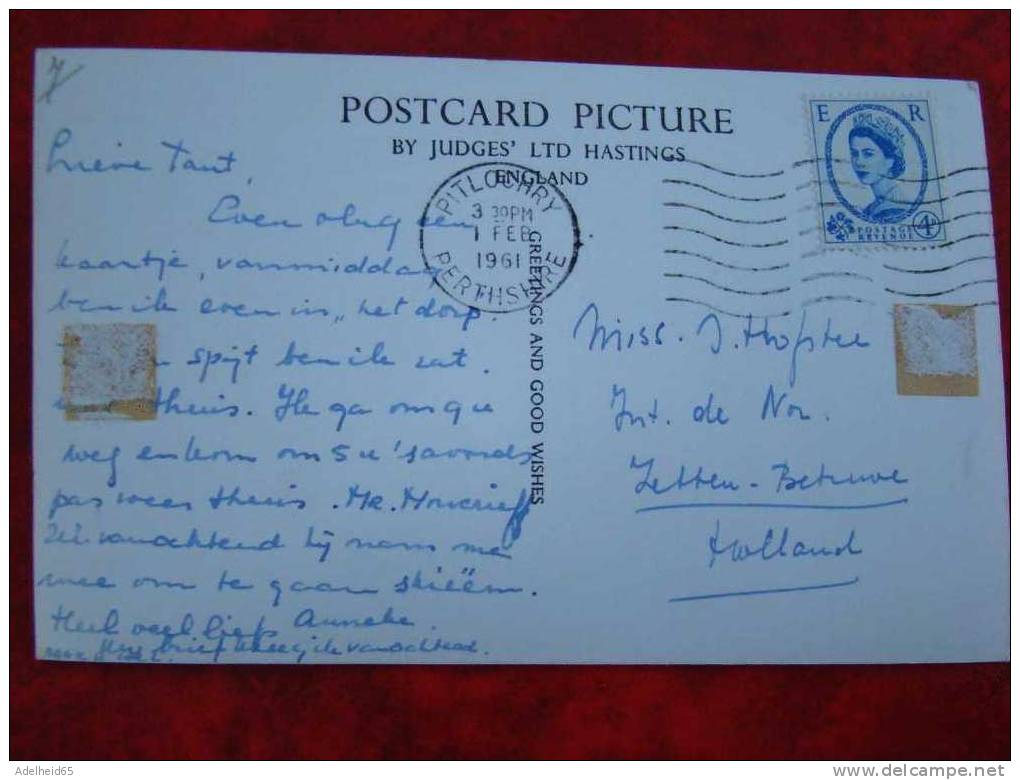 POSTCARD PICTURE
BY JUDGES' LTD HASTINGS
ENGLAND
E R
POSTAGE
REVENUE
4D
PITLOCHRY
3 30PM
1 FEB
1961
PERTHSHIRE
GREETINGS AND GOOD WISHES
Lieve Tant,
Even vlug een
kaartje, vanmiddag
ben ik even in „het dorp.
spijt ben ik zat.
thuis. Ik ga om 9 u
weg en kom om 5 u 's avonds
pas weer thuis. Mr. Moncrieff
zei vanochtend hij nam me
mee om te gaan skieëen.
Heel veel liefs Anneke.
brief kreeg ik vanochtend.
Miss. J. Hofstee
Int. de Nor.
Zetten - Betuwe
Holland
Adelheid65
delcampe.net